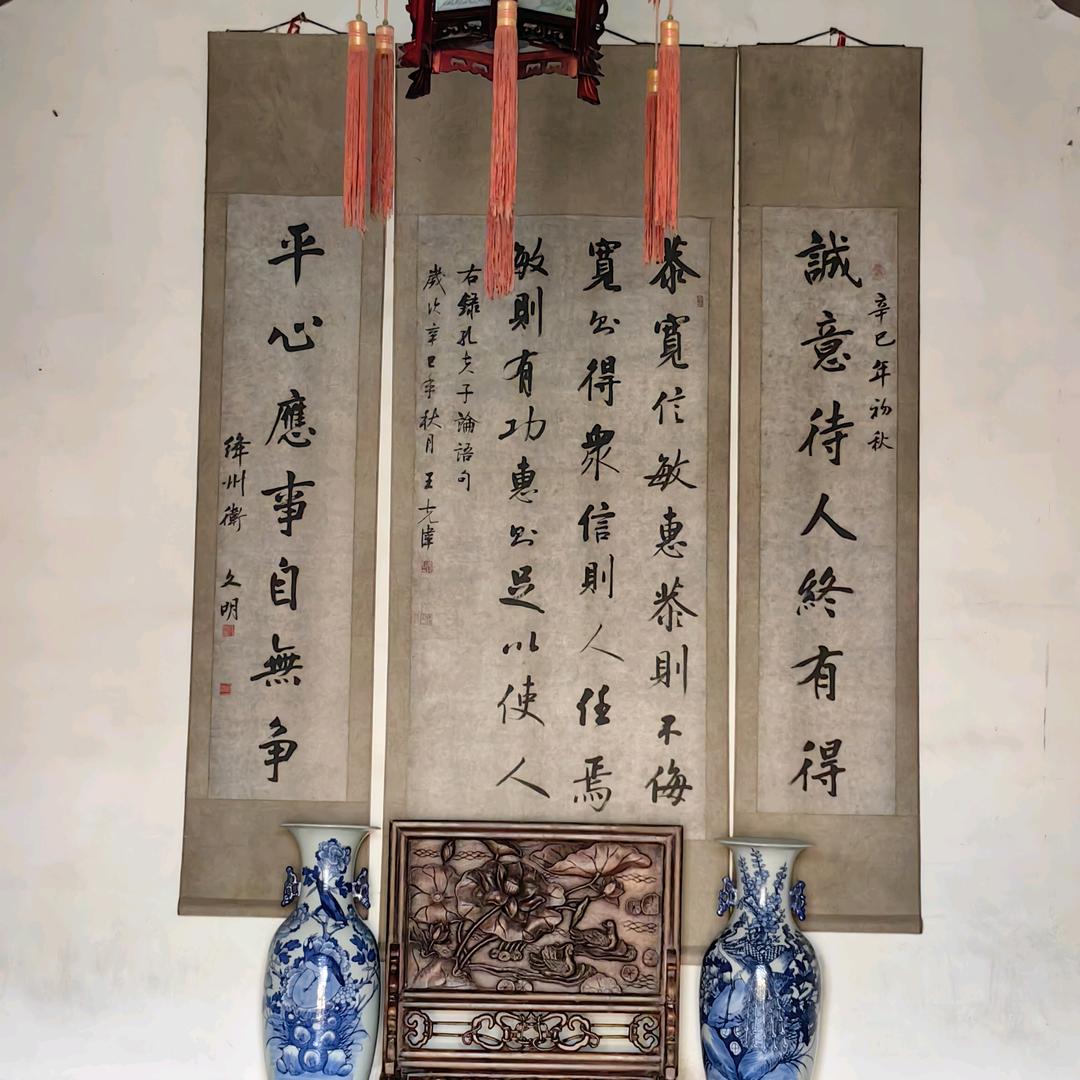 辛巳年初秋
誠意待人終有得
恭寬信敏惠恭則不侮
寬則得衆信則人任焉
敏則有功惠則足以使人
右錄孔夫子論語句
歲次辛巳年秋月王克偉
平心應事自無争
絳州衛文明